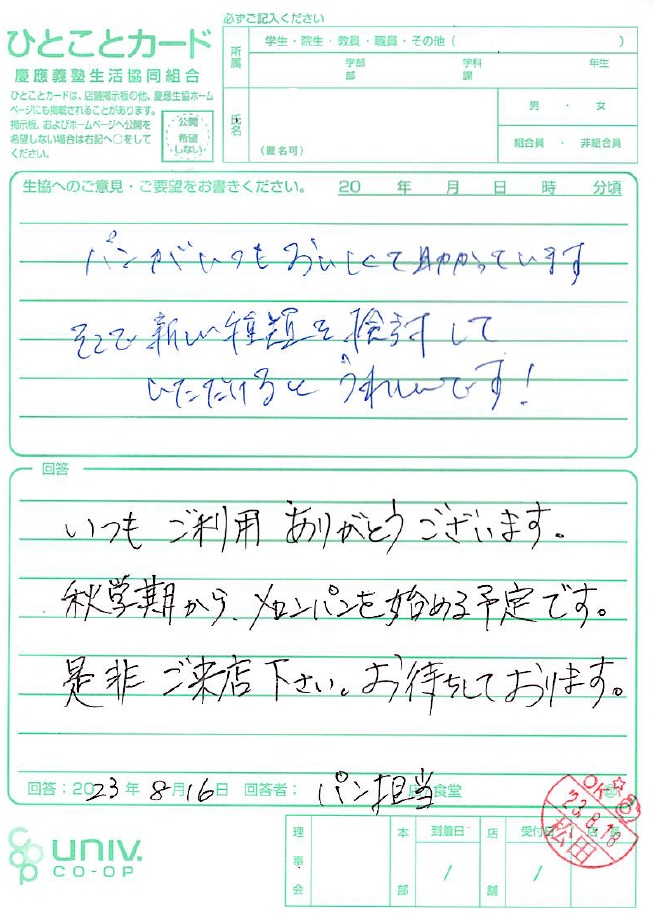 必ずご記入ください
ひとことカード
慶應義塾生活協同組合
ひとことカードは、店舗掲示板の他、慶應生協ホーム
ページにも掲載されることがあります。
掲示板、およびホームページへ公開を
希望しない場合は右記へ○をして
ください。
公開
希望
しない
所属
学生・院生・教員・職員・その他( )
学部 学科 年生
部 課
氏名
(匿名可)
男 ・ 女
組合員 ・ 非組合員
生協へのご意見・ご要望をお書きください。 20 年 月 日 時 分頃
パンがいつもおいしくて助かっています
そこで新しい種類を検討して
いただけると うれしいです!
回答
いつも ご利用 ありがとうございます。
秋学期から、メロンパンを始める予定です。
是非 ご来店下さい。お待ちしております。
回答:2023年 8月16日 回答者: パン担当 食堂
OK☆
23.8.18
松田
UNIV.
CO-OP
理事会
本部
到着日
/
店舗
受付日
/
店長